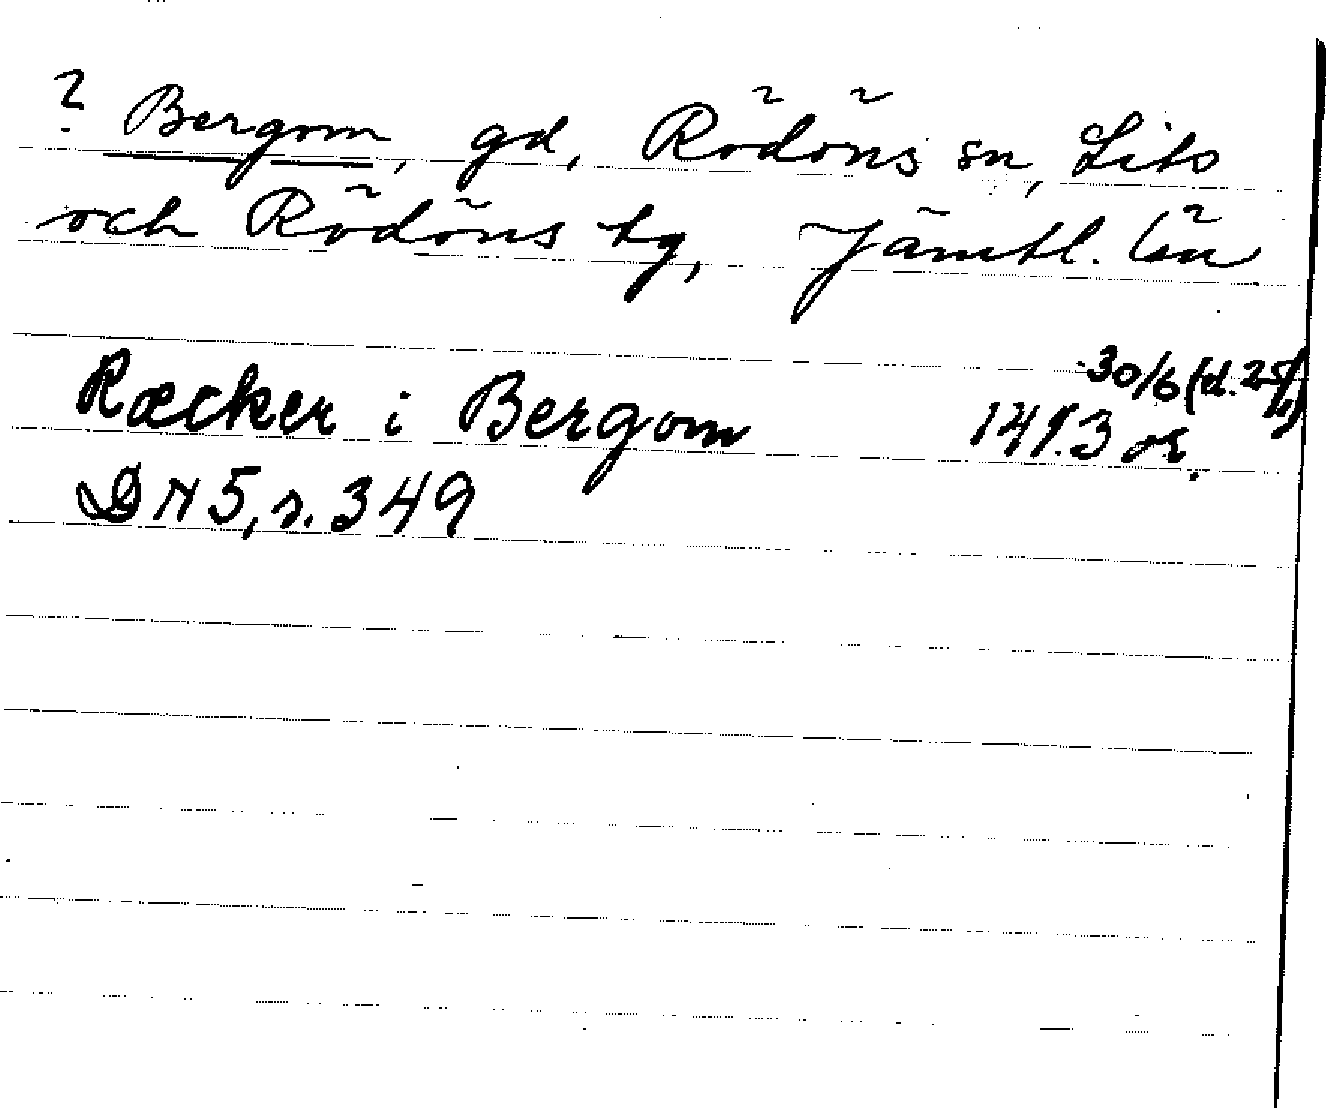 ? Bergom, gd, Rödöns sn, Lits
och Rödöns tg, Jämtl. län
30/6 (d. 25/1)
Ræcker i Bergom 1413 or.
DN 5, s. 349